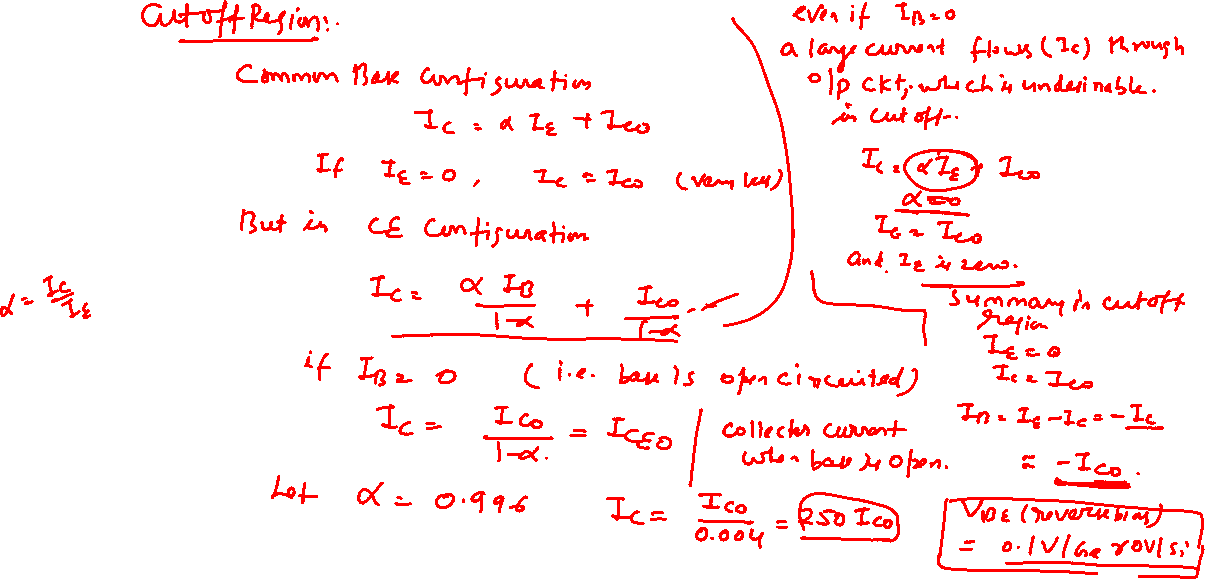 Cutoff Region:.
Common Base Configuration
I_C = α I_E + I_CO
If I_E = 0, I_C = I_CO (very less)
But in CE Configuration
α = I_C/I_E
I_C = α I_B/(1-α) + I_CO/(1-α)
if I_B = 0 (i.e. base is open circuited)
I_C = I_CO/(1-α) = I_CEO
collector current
when base is open.
Let α = 0.996 I_C = I_CO/0.004 = 250 I_CO
even if I_B = 0
a large current flows (I_C) through
o/p ckt, which is undesirable.
in cut off.
I_C = α I_E + I_CO
α = 0
I_C = I_CO
and I_E is zero.
Summary in cutoff
region
I_E = 0
I_C = I_CO
I_B = I_E - I_C = - I_C
= - I_CO.
V_BE (reverse bias)
= 0.1V/Ge 0V/Si